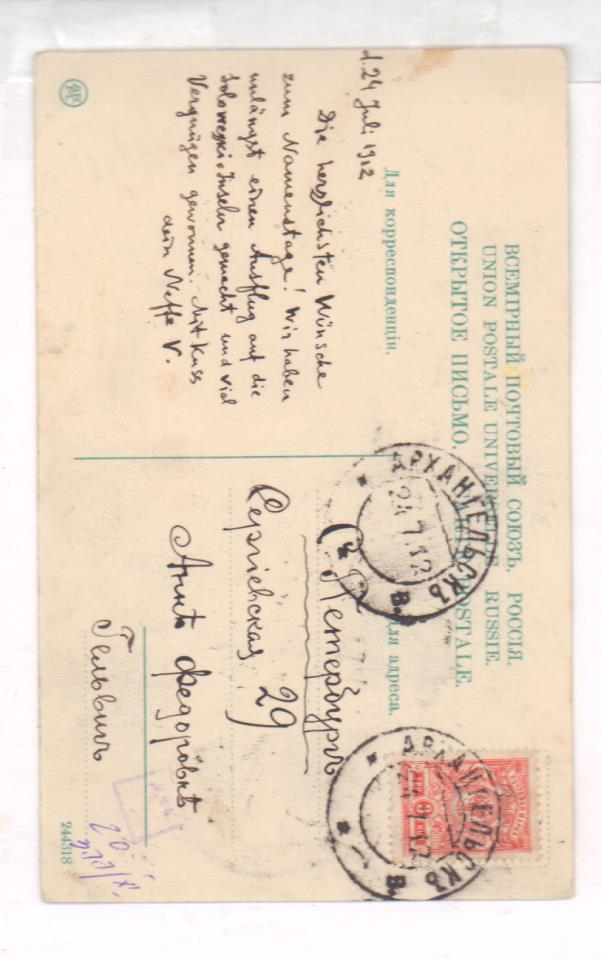 ВСЕМІРНЫЙ ПОЧТОВЫЙ СОЮЗЪ. РОССІЯ.
UNION POSTALE UNIVERSELLE RUSSIE.
ОТКРЫТОЕ ПИСЬМО. CARTE POSTALE.
Для корреспонденціи.
Для адреса.
d. 24 Juli 1912
Die herzlichsten Wünsche
zum Namenstage! Wir haben
unlängst einen Ausflug auf die
Solowezki-Inseln gemacht und viel
Vergnügen gewonnen. Mit Kuss
dein Neffe V.
АРХАНГЕЛЬСКЪ
24 7 12
АРХАНГЕЛЬСКЪ
С. Петербургъ
Сергіевская 29
Аннѣ Федоровнѣ
Гельвихъ
244318